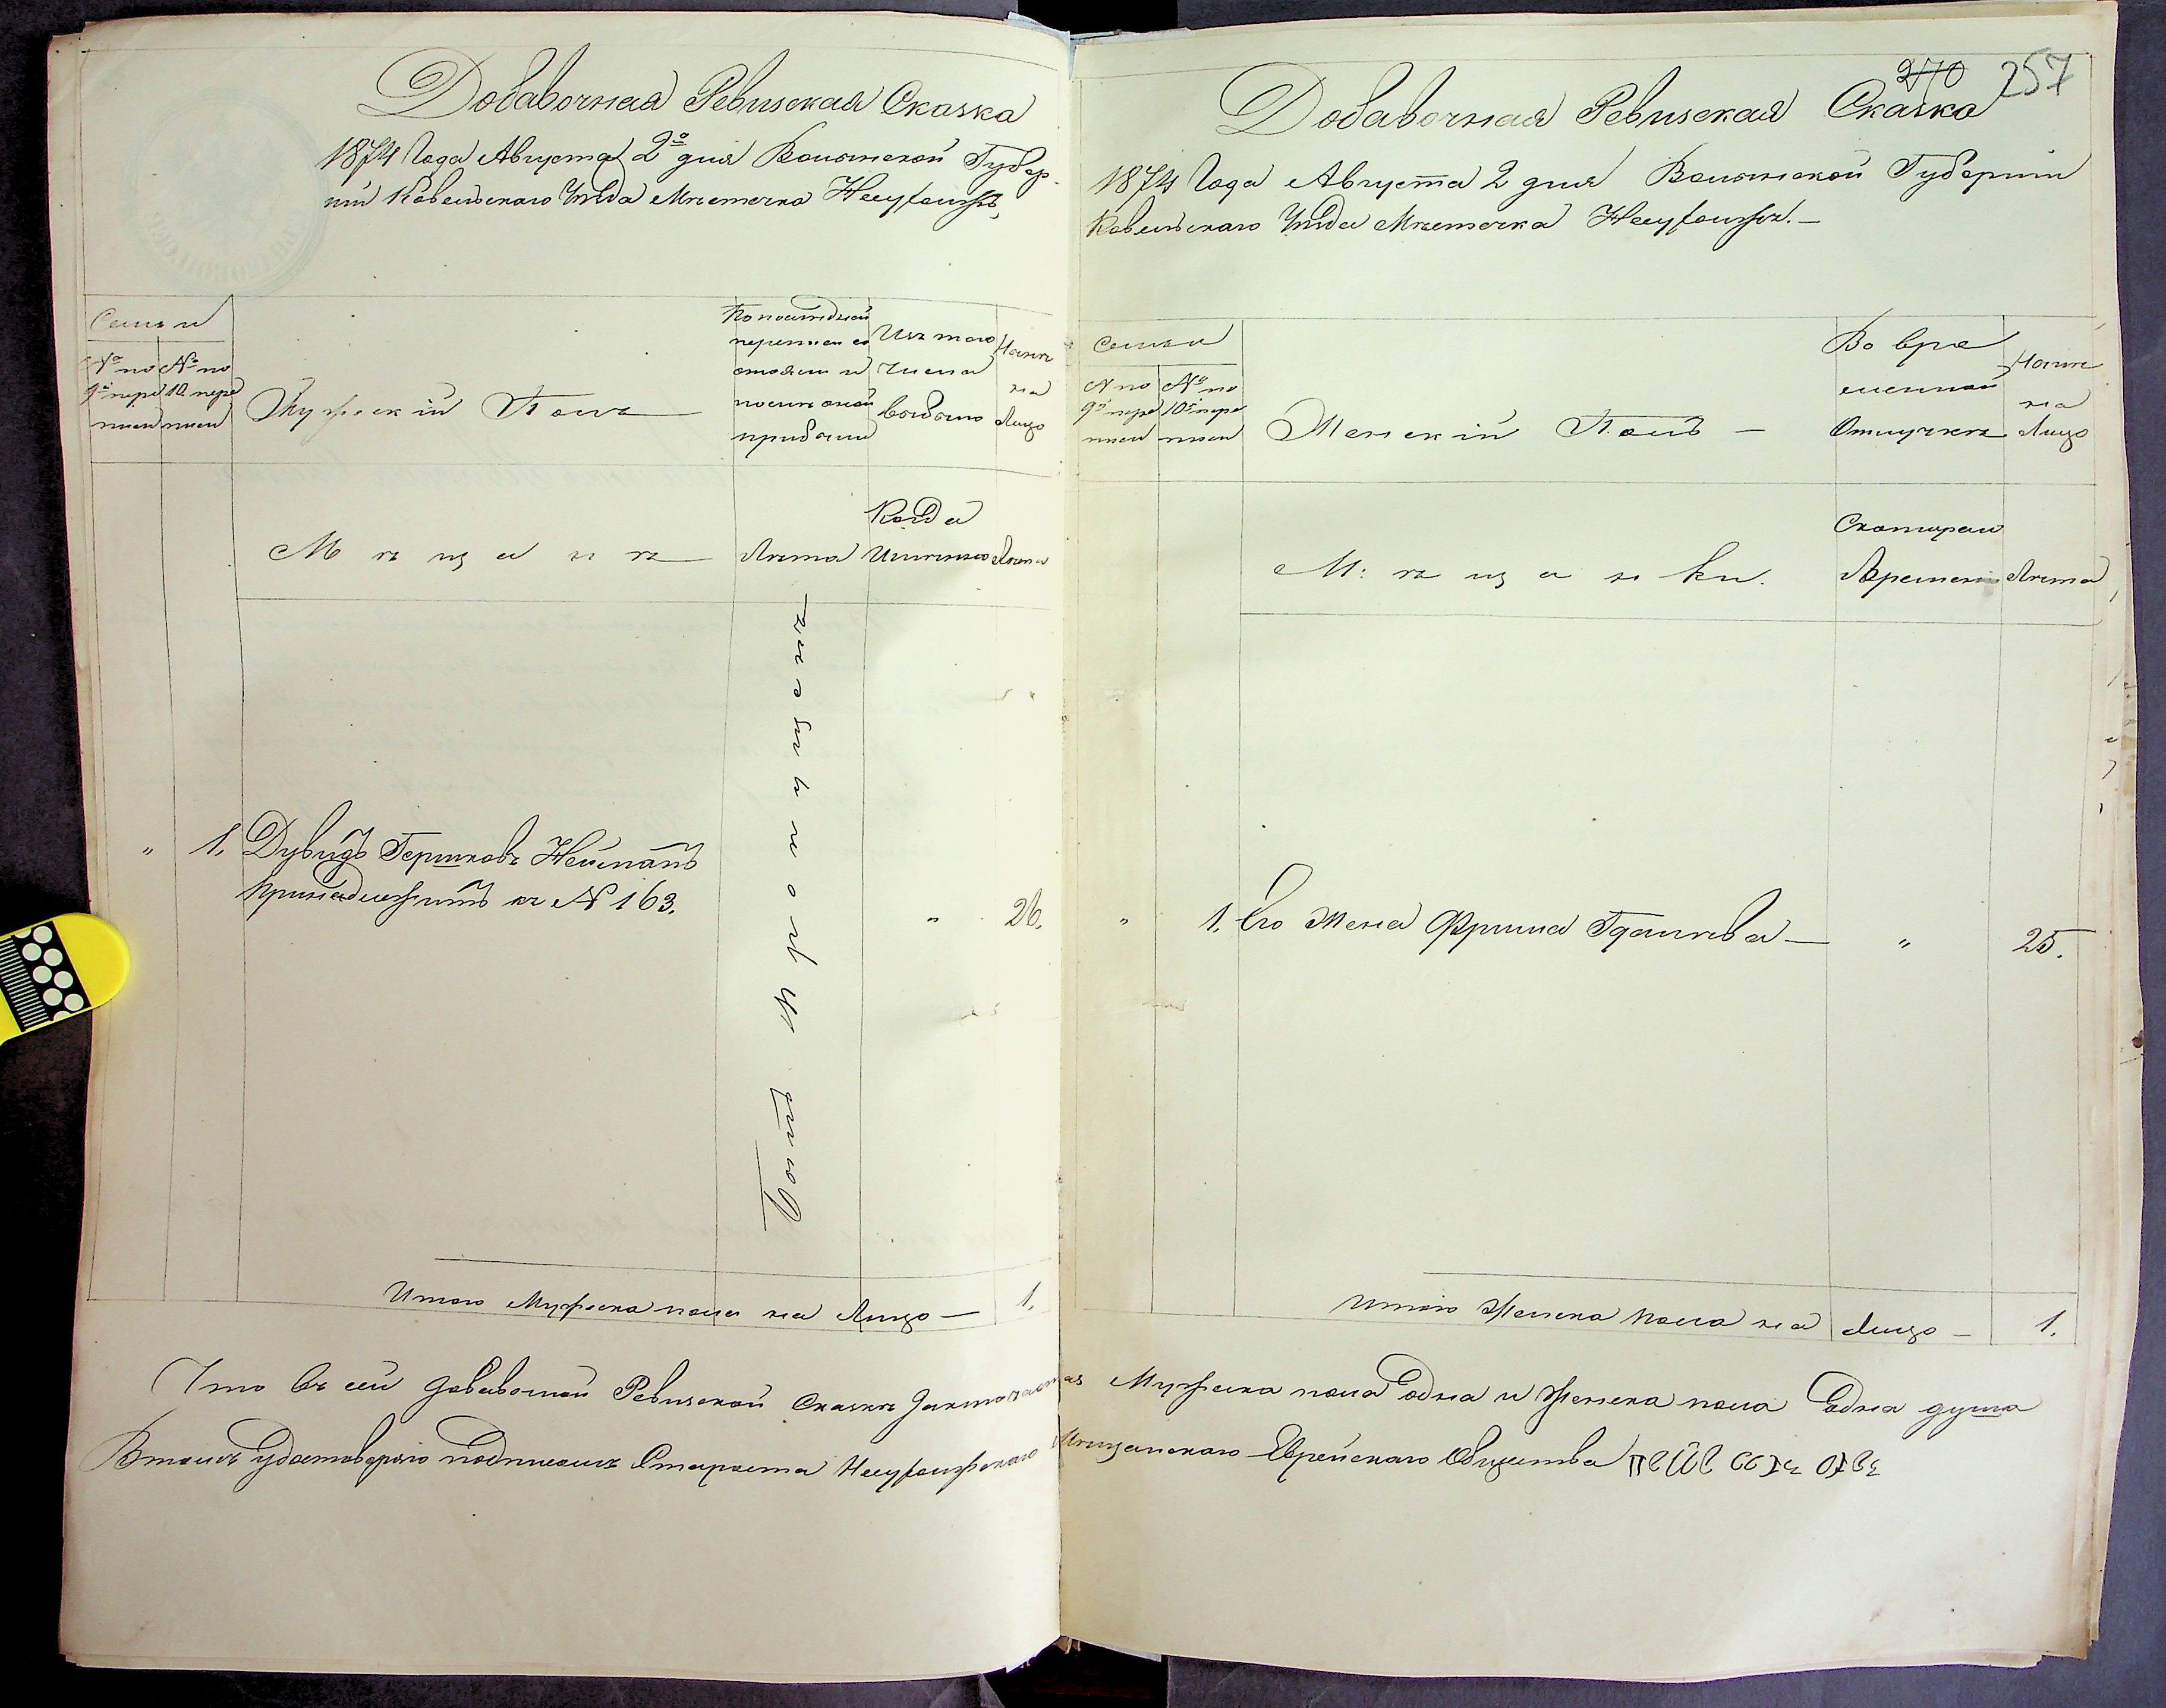 Добавочная Ревизская Сказка
1874 Года Августа 2го дня Волынской Губер-
нии Ковельскаго Уѣзда Мѣстечка Несухоижъ
Семьи
№ по 9й переписи
№ по 10 переписи
Мужескій Полъ
По последней переписи состояли и после оной прибыли
Изъ того числа выбыло
Ныне на Лицо
Мѣщанъ
Лѣта
Когда Именно
Лѣта
" 1. Дувидъ Гершковъ Нейманъ
принадлежитъ къ № 163.
Былъ Пропущенъ
" 26.
Итого Мужеска пола на Лицо — 1.
270 257
Добавочная Ревизская Сказка
1874 Года Августа 2 дня Волынской Губерніи
Ковельскаго Уѣзда Мѣстечка Несухоижъ. —
Семьи
№ по 9й переписи
№ по 10й переписи
Женскій Полъ —
Во временной Отлучкѣ
Ныне на Лицо
Мѣщанки.
Скотораго Времени
Лѣта
" 1. Его Жена Фрима — " 25.
Итого Женска пола на Лицо — 1.
Что въ сей добавочной Ревизской Сказкѣ Заключается Мужеска пола Одна и Женска пола Одна душа
Втомъ удостоверяю подписомъ Староста Несухоижскаго Мѣщанскаго Еврейскаго Общества